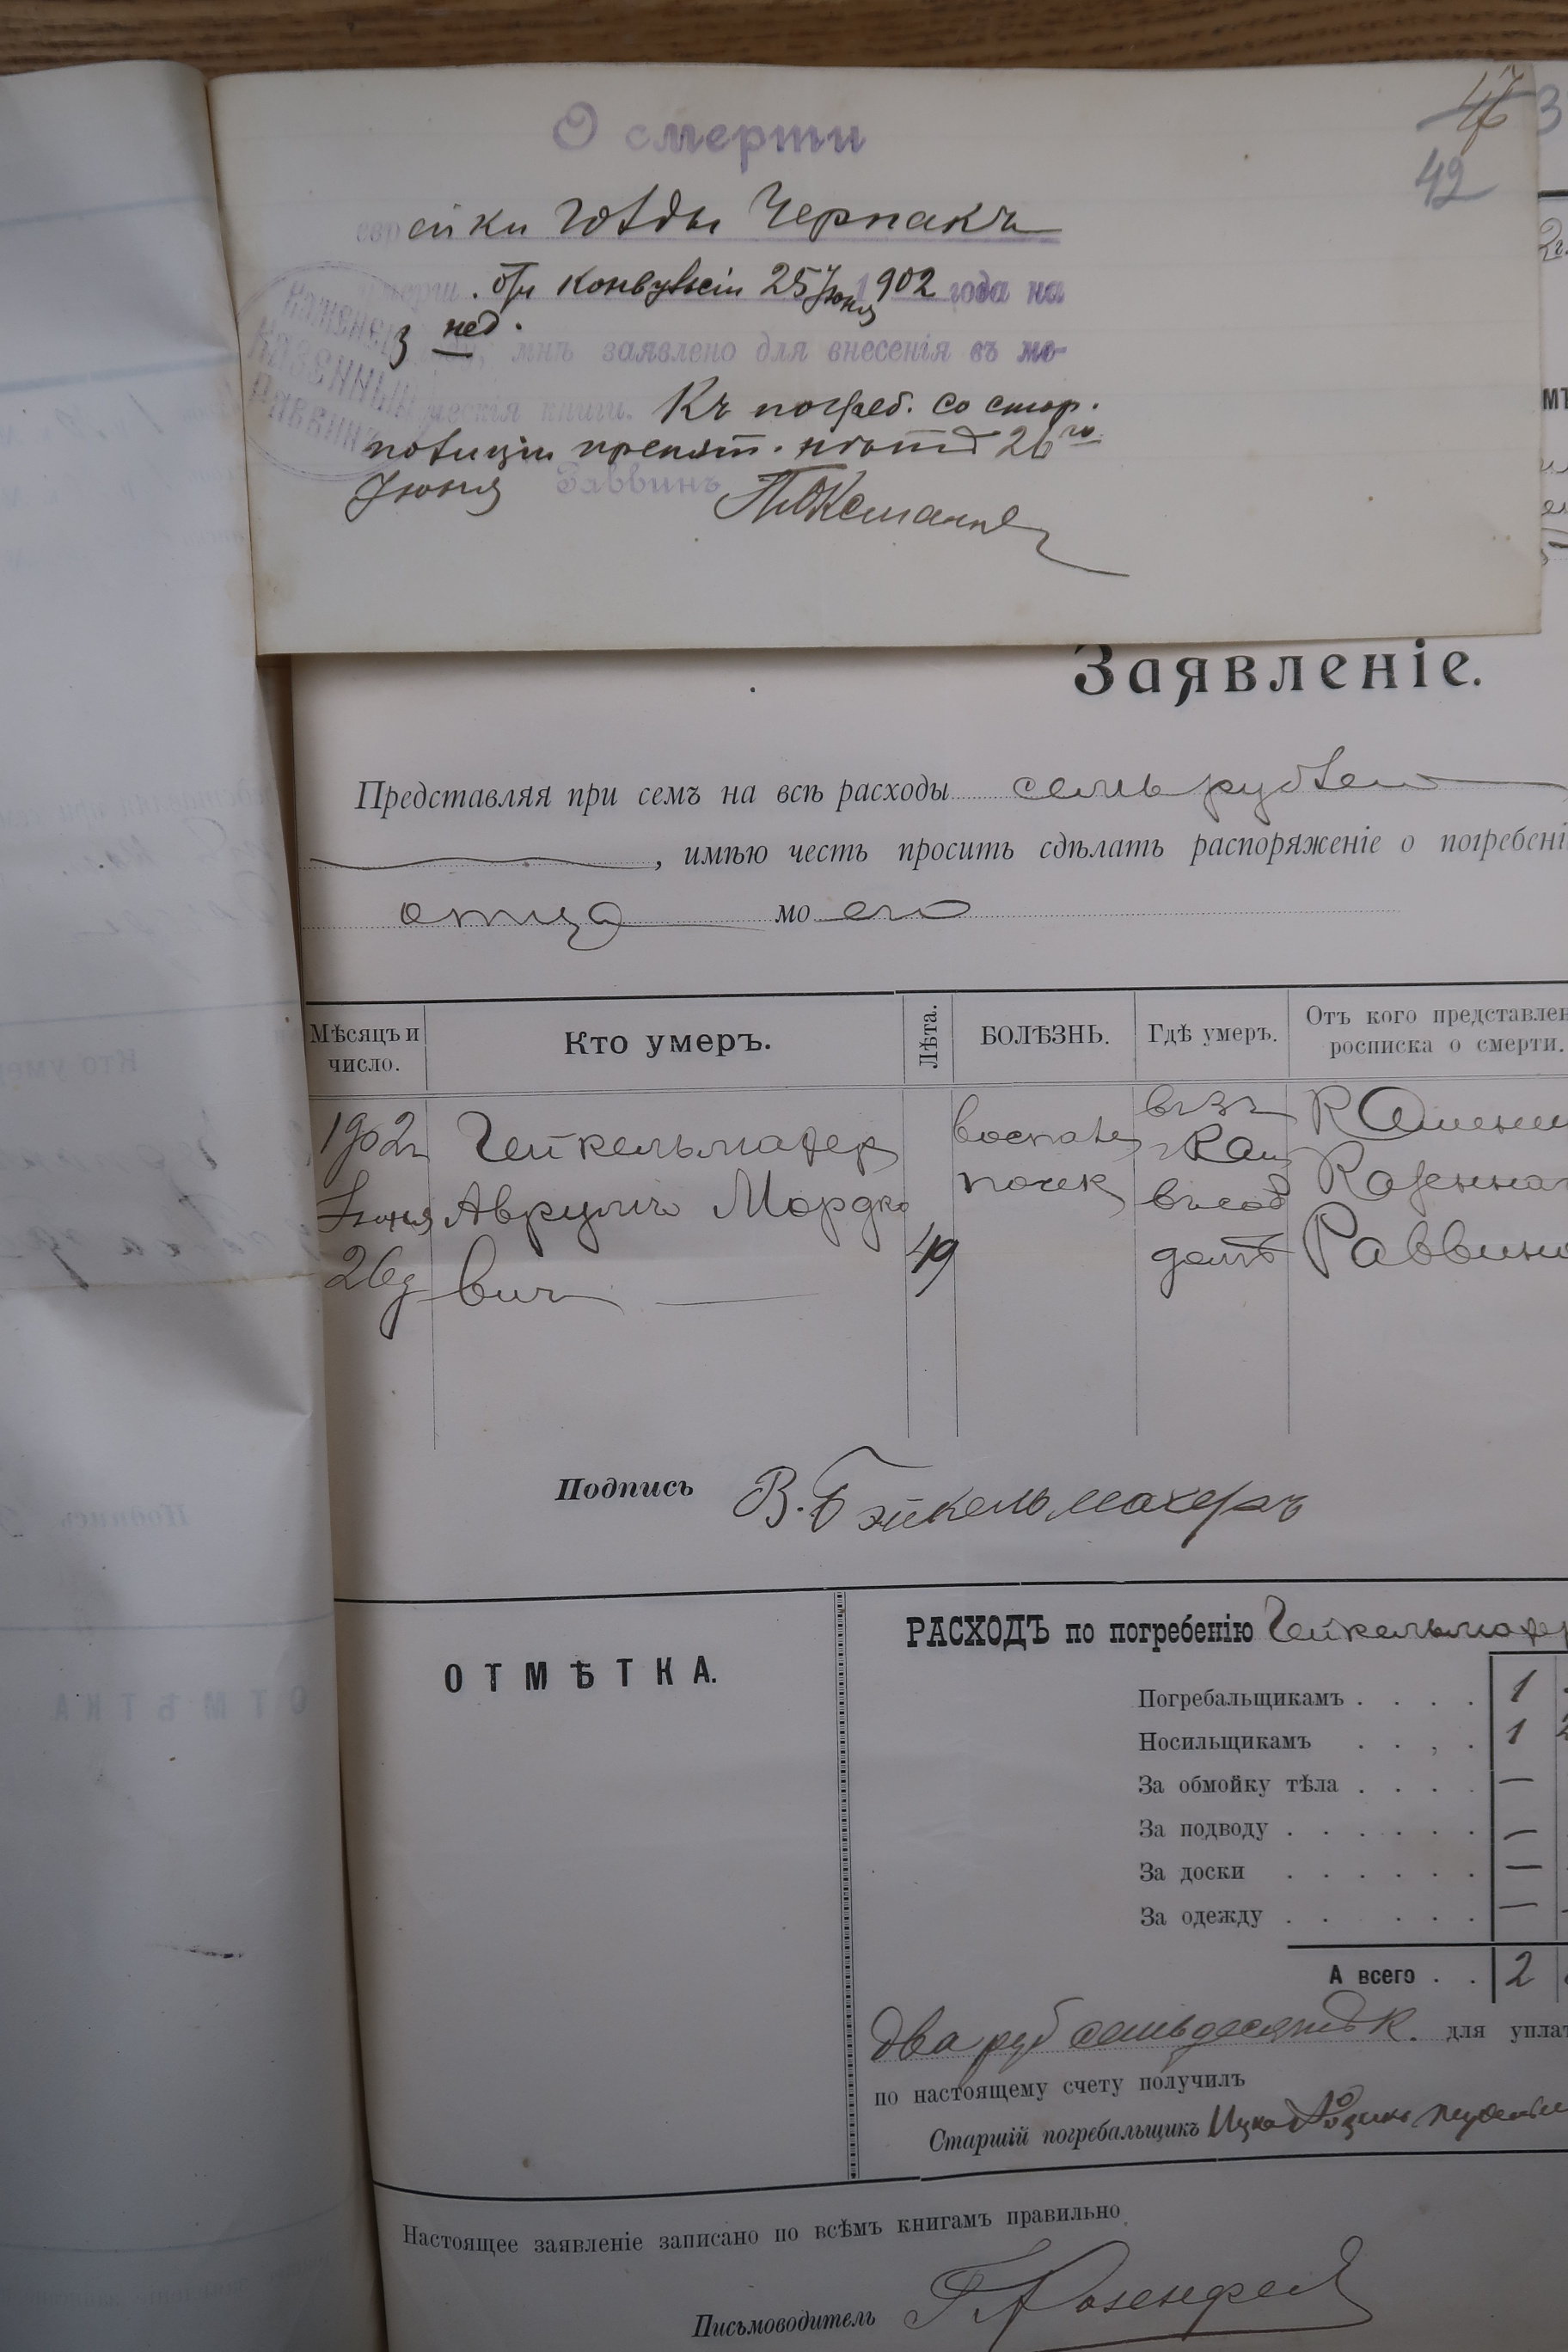 О смерти
47
42
еврейки Голды Черпакъ
. отъ конвульсіи 25 Іюня 1902 года на
3 нед.
мнѣ заявлено для внесенія въ ме-
ческія книги. Къ погреб. со стор.
полиціи препят. нѣтъ 26го
Іюня Раввинъ
КАМЕНЕЦ
КАЗЕННЫЙ
РАВВИНЪ
Заявленіе.
Представляя при семъ на всѣ расходы семь рублей
, имѣю честь просить сдѣлать распоряженіе о погребені
отца моего
Мѣсяцъ и число.
Кто умеръ.
Лѣта.
БОЛѢЗНЬ.
Гдѣ умеръ.
Отъ кого представлен
росписка о смерти.
1902г
Іюня
26д
Гейкельмахер
Аврумъ Мордко
вич
49
воспале
почек
въ соб
домѣ
Каменец
Казеннаг
Раввина
Подпись В. Гэйкельмахеръ
ОТМѢТКА.
РАСХОДЪ по погребенію Гейкельмахер
Погребальщикамъ . . . . 1
Носильщикамъ . . , . 1
За обмойку тѣла . . . . —
За подводу . . . . . . —
За доски . . . . . . —
За одежду . . . . . . —
А всего . . 2
два руб семьдесятъ к. для уплат
по настоящему счету получилъ
Старшій погребальщикъ Ицко
Настоящее заявленіе записано по всѣмъ книгамъ правильно
Письмоводитель Г. Розенфельд